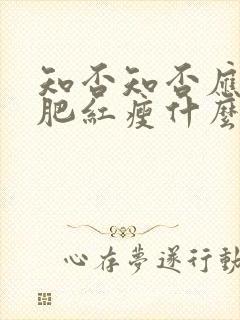 知否知否應
肥紅瘦什麼
心存夢遂行動